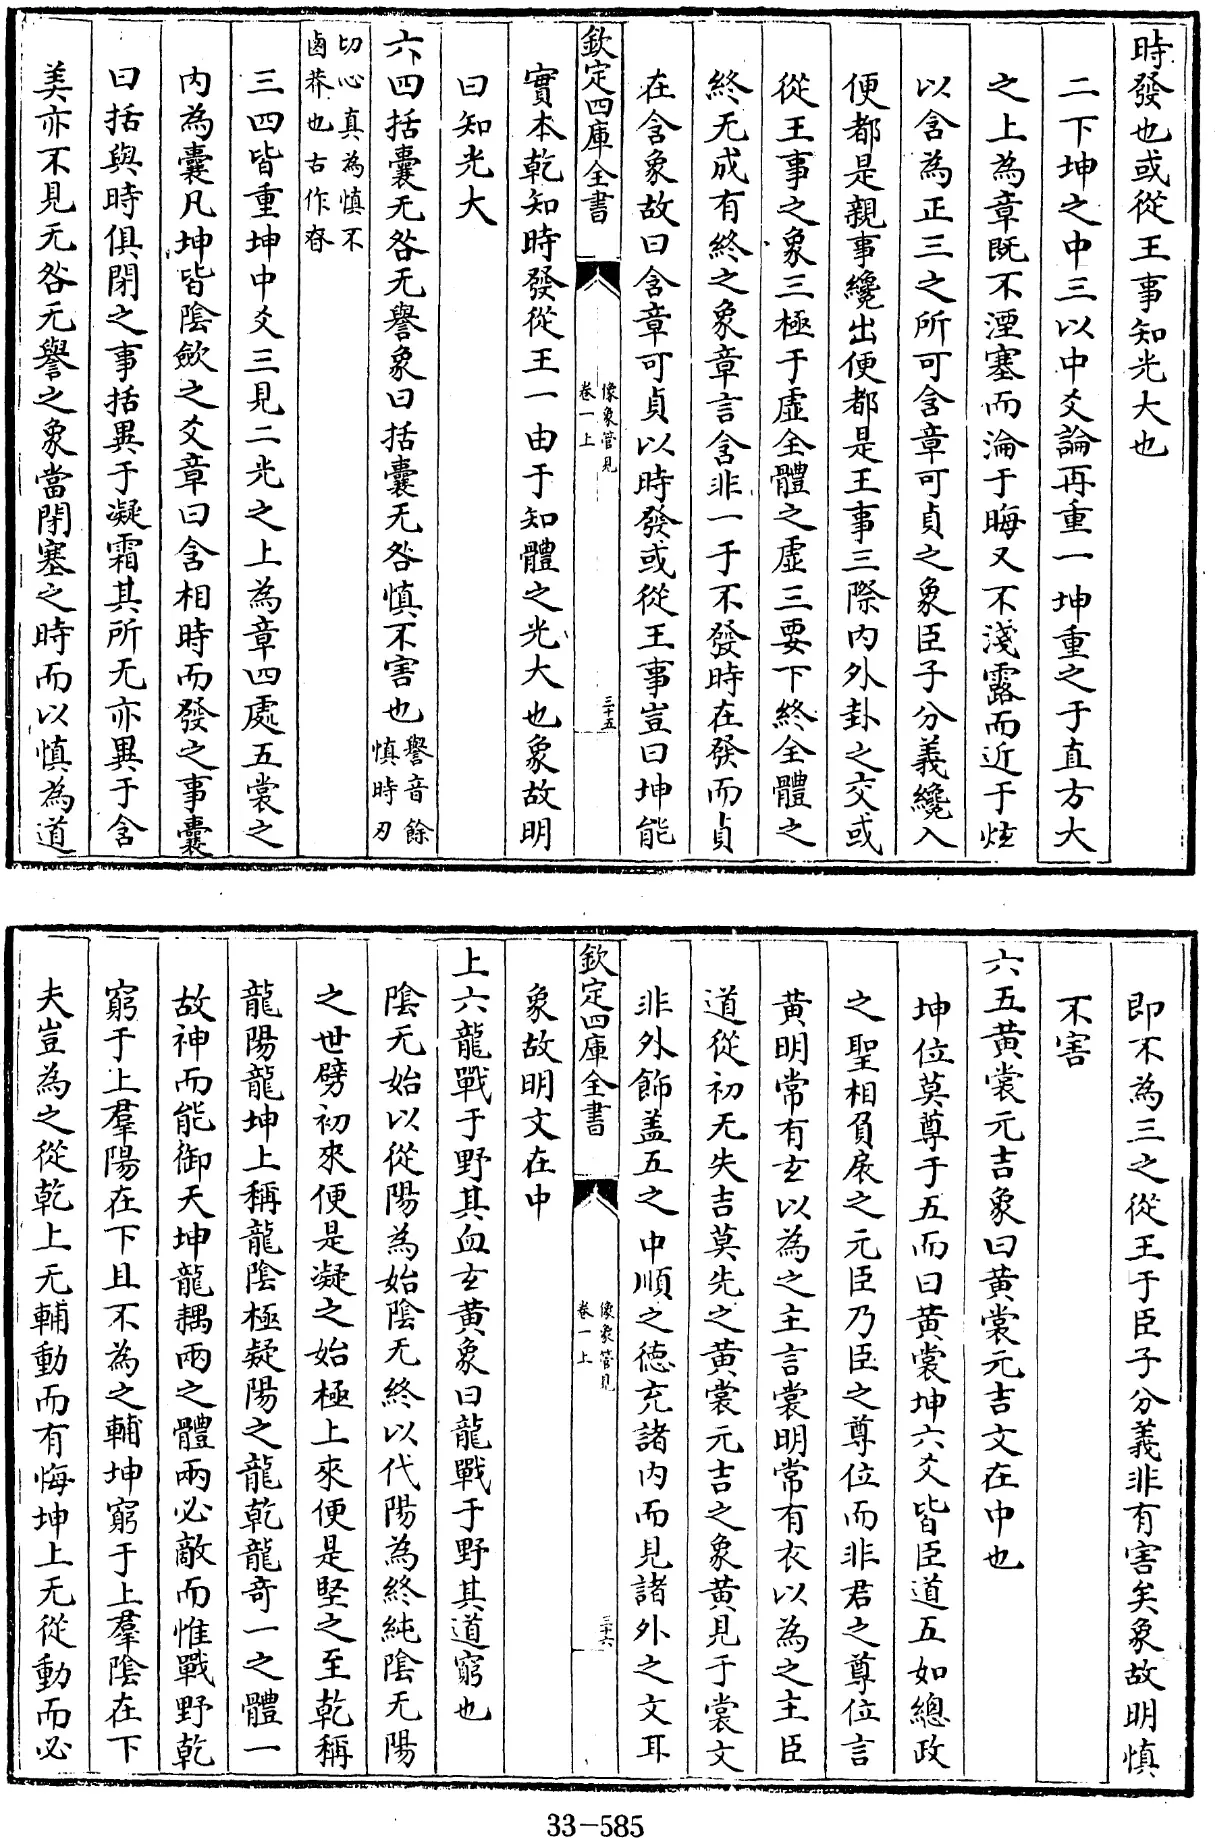 時發也或從王事知光大也
二下坤之中三以中爻論再重一坤重之于直方大
之上為章既不湮塞而淪于晦又不淺露而近于炫
以含為正三之所可含章可貞之象臣子分義纔入
便都是親事纔出便都是王事三際內外卦之交或
從王事之象三極于虛全體之虛三要下終全體之
終无成有終之象章言含非一于不發時在發而貞
在含象故曰含章可貞以時發或從王事豈曰坤能
欽定四庫全書
像象管見
卷一上
三十五
實本乾知時發從王一由于知體之光大也象故明
曰知光大
六四括囊无咎无譽象曰括囊无咎慎不害也譽音餘
慎時刃
切心真為慎不
鹵莽也古作昚
三四皆重坤中爻三見二光之上為章四處五裳之
內為囊凡坤皆陰歛之爻章曰含相時而發之事囊
曰括與時俱閉之事括異于凝霜其所无亦異于含
美亦不見无咎无譽之象當閉塞之時而以慎為道
即不為三之從王于臣子分義非有害矣象故明慎
不害
六五黃裳元吉象曰黃裳元吉文在中也
坤位莫尊于五而曰黃裳坤六爻皆臣道五如總政
之聖相負扆之元臣乃臣之尊位而非君之尊位言
黃明常有玄以為之主言裳明常有衣以為之主臣
道從初无失吉莫先之黃裳元吉之象黃見于裳文
非外飾盖五之中順之德充諸內而見諸外之文耳
欽定四庫全書
像象管見
卷一上
三十六
象故明文在中
上六龍戰于野其血玄黃象曰龍戰于野其道窮也
陰无始以從陽為始陰无終以代陽為終純陰无陽
之世劈初來便是凝之始極上來便是堅之至乾稱
龍陽龍坤上稱龍陰極疑陽之龍乾龍奇一之體一
故神而能御天坤龍耦兩之體兩必敵而惟戰野乾
窮于上羣陽在下且不為之輔坤窮于上羣陰在下
夫豈為之從乾上无輔動而有悔坤上无從動而必
33-585